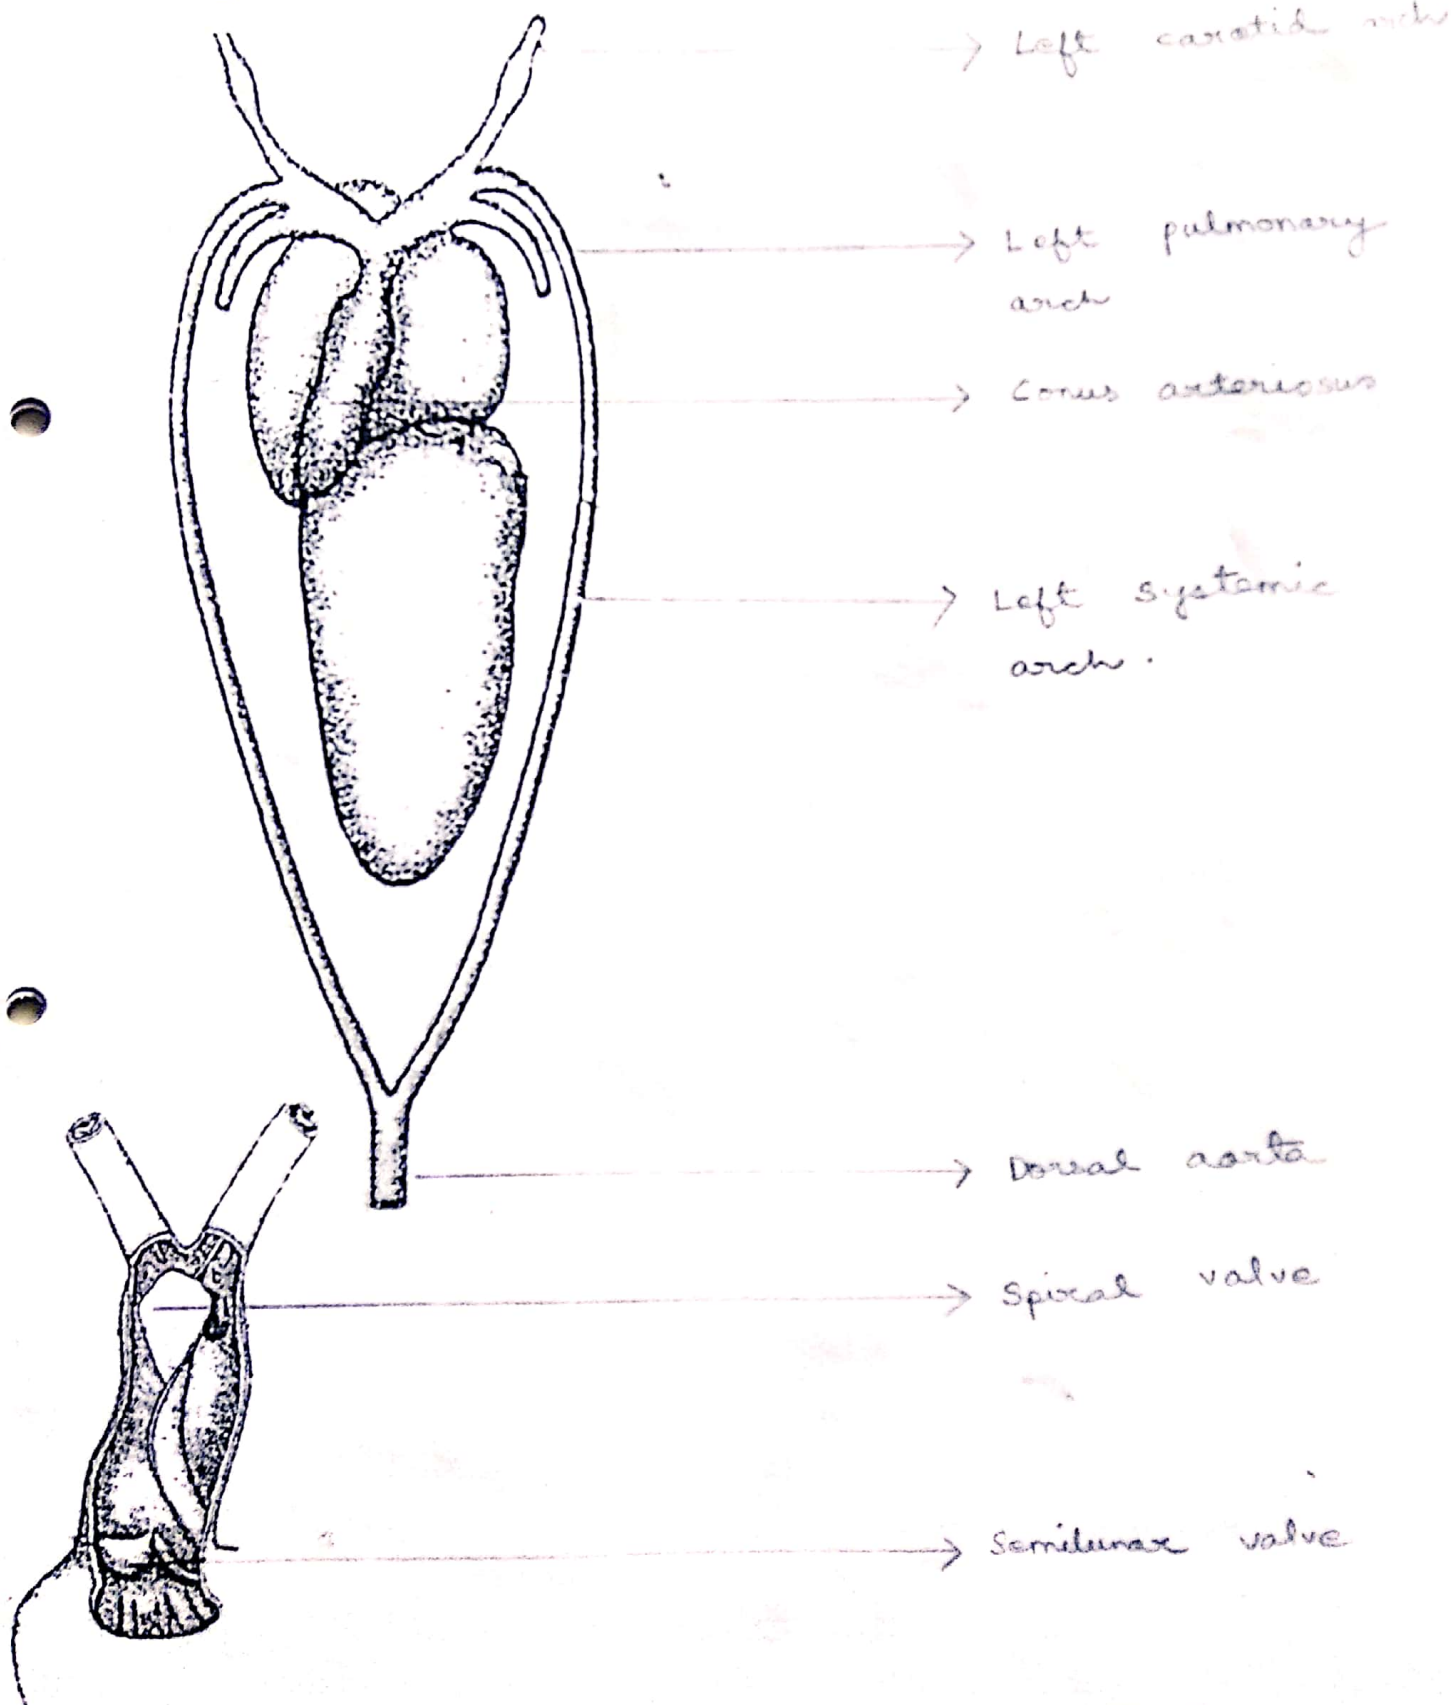 Left carotid arch
Left pulmonary
arch
Conus arteriosus
Left systemic
arch.
Dorsal aorta
Spiral valve
Semilunar valve